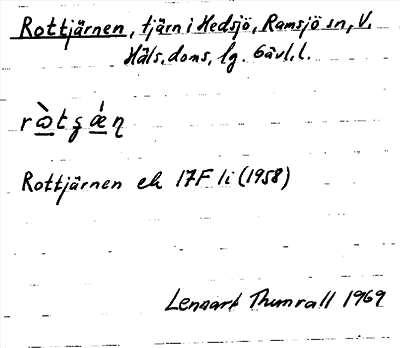 Rottjärnen, tjärn i Hedsjö, Ramsjö sn, V.
Häls. doms. lg. Gävl. l.
r ɷ̀ t ʂ ǽ ŋ
Rottjärnen ek 17F 1i (1958)
Lennart Thunvall 1969